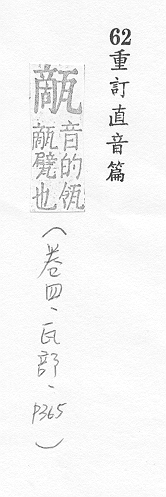 62 重訂直音篇
甋
音的瓴
甋甓也
（卷四、瓦部、P365）